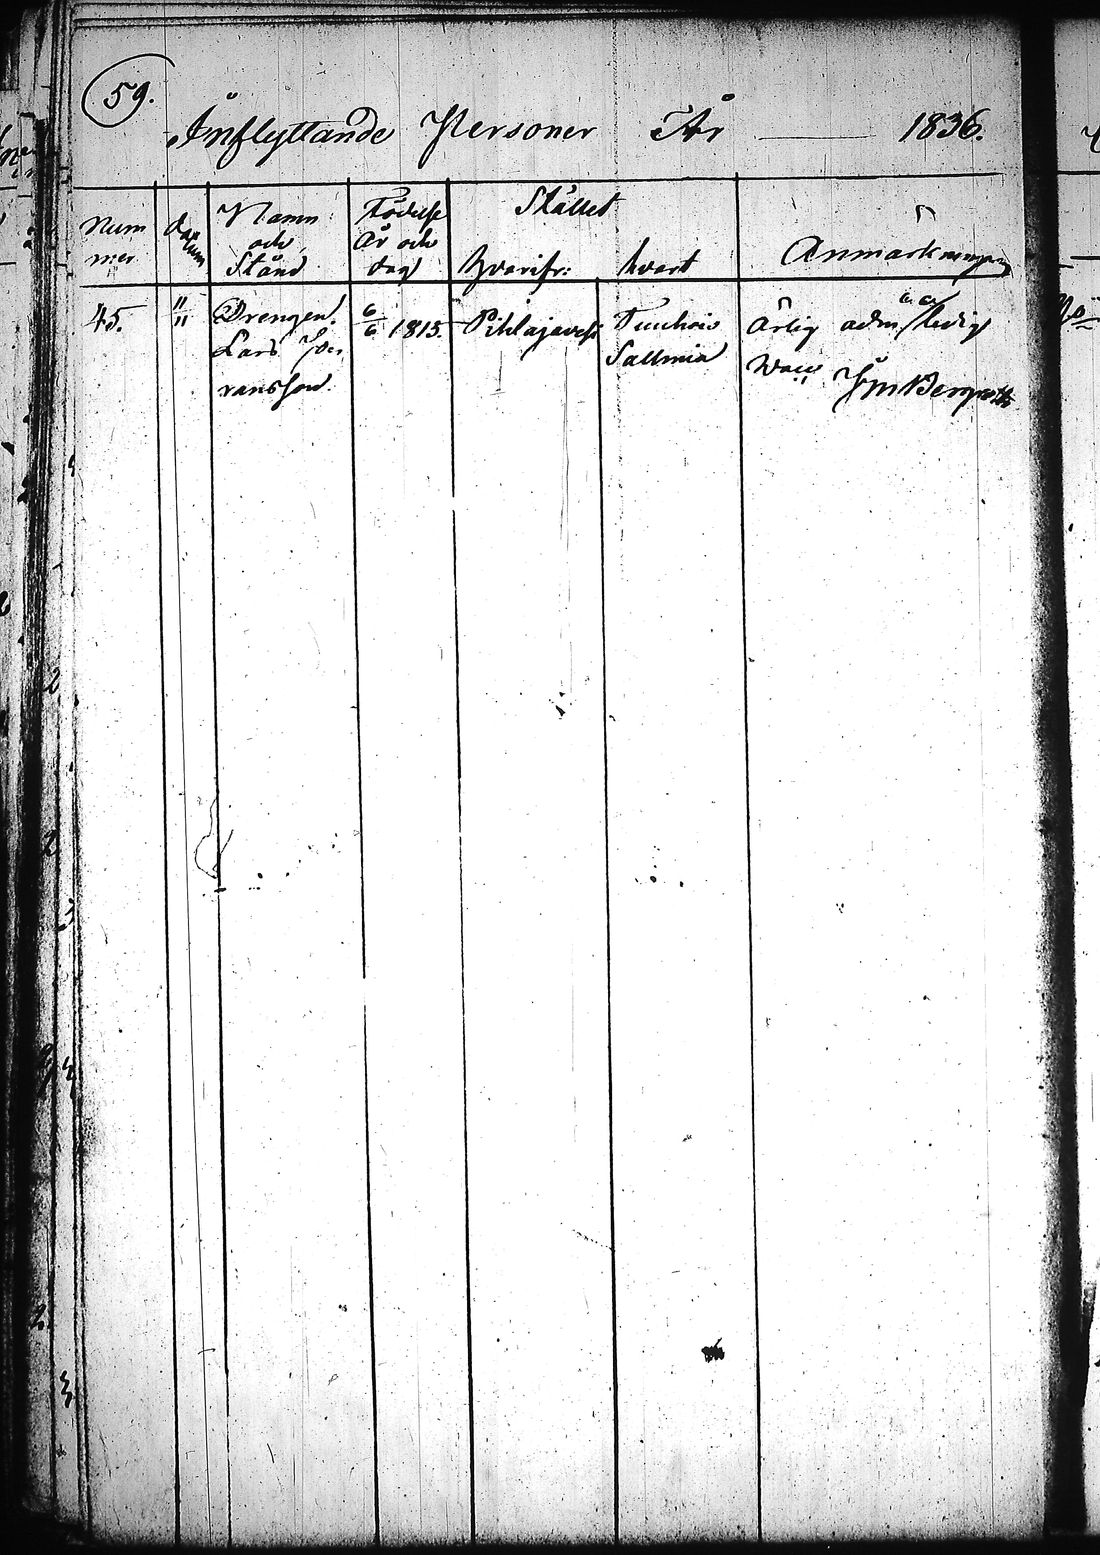 59.
Inflyttande Personer År 1836.
Num
mer
datum
Namn
och
Stånd
Födelse
År och
dag
Stället
hvarifr:
hvart
Anmärkningar
45.
11/11
Drengen
Lars Jö
ransson
6/6 1815.
Pihlajavesi
Sallmia
Ärlig adm: ledig